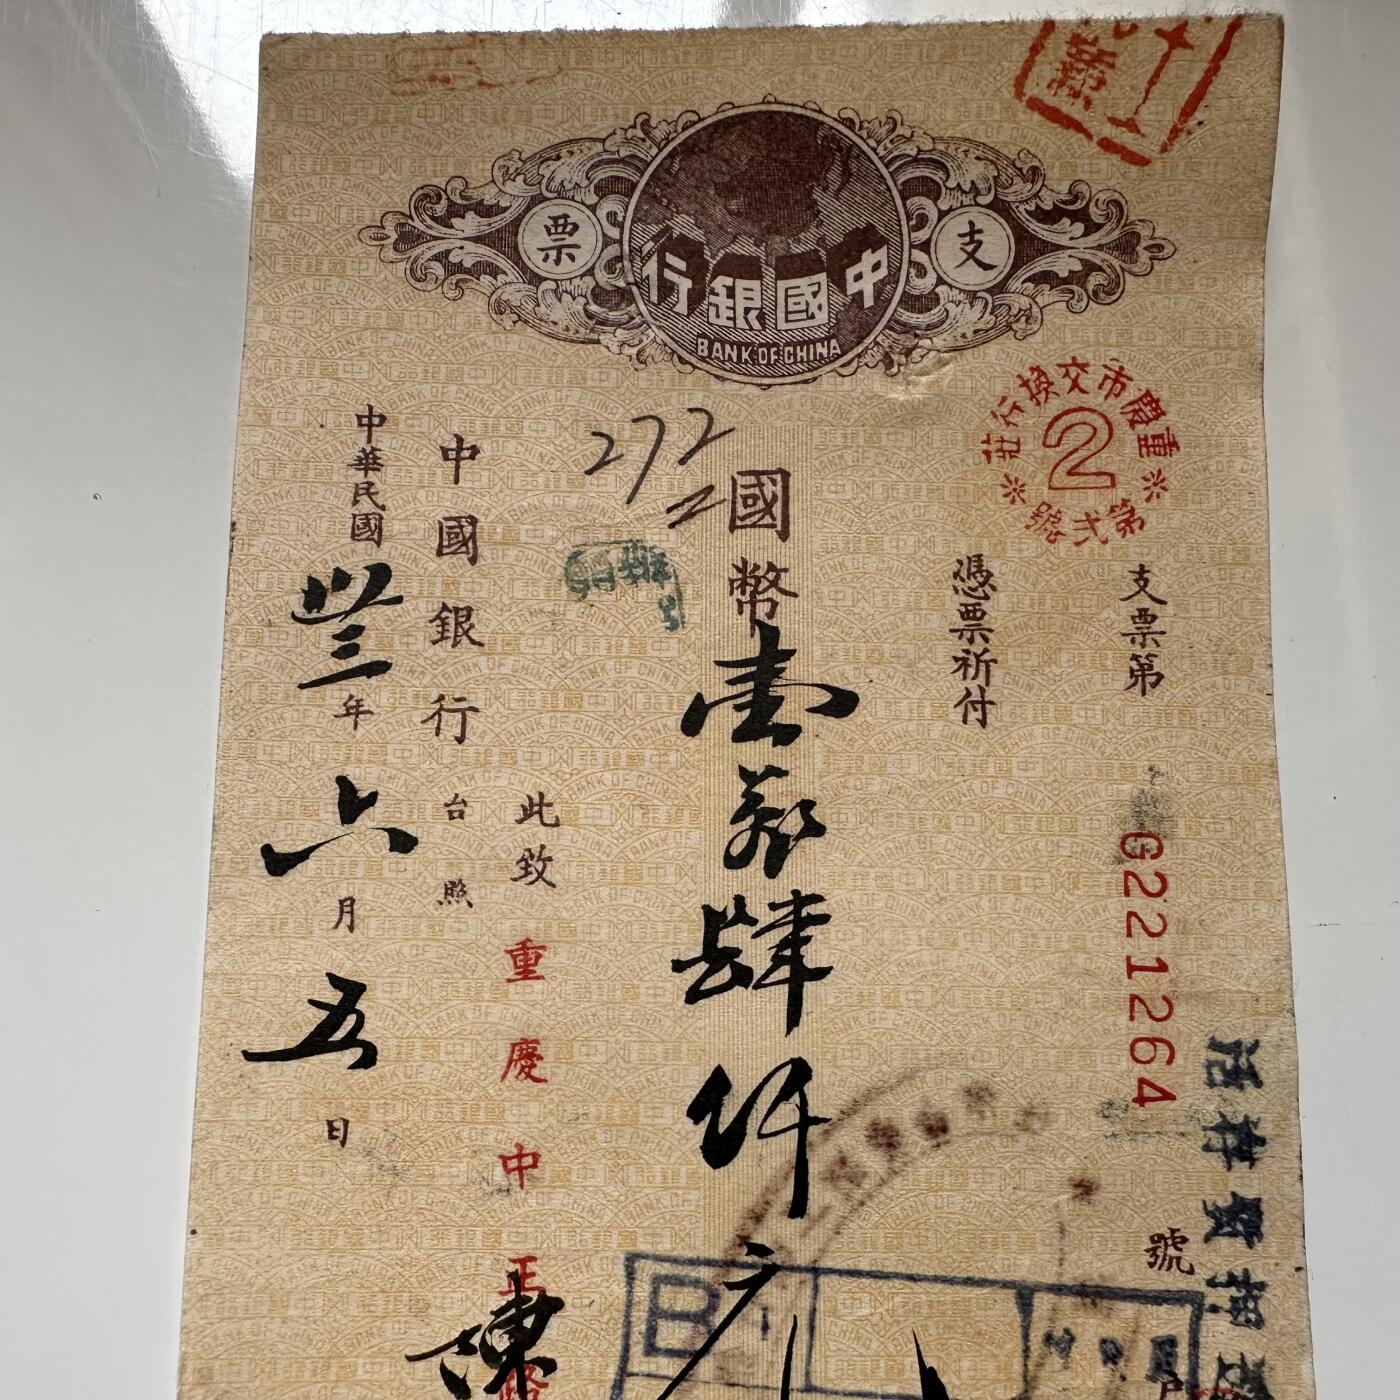 支票
中國銀行
BANK OF CHINA
重慶市交換行莊
2
第弍號
支票第
G2211264
號
憑票祈付
國幣壹萬肆仟
272
此致
重慶中正路
中國銀行台照
中華民國卅三年六月五日
陳
B